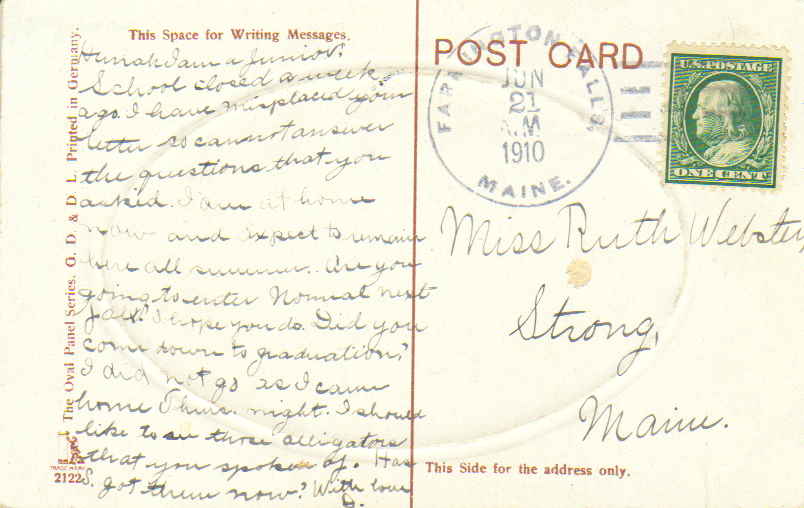 This Space for Writing Messages.
Hurrah I am a Junior.
School closed a week
ago. I have misplaced your
letter so cannot answer
the questions that you
asked. I am at home
now and expect to remain
here all summer. Are you
going to enter Normal next
fall? I hope you do. Did you
come down to graduation?
I did not go as I came
home Thurs. night. I should
like to see those alligators
that you spoke of. Has
S. got them now? With love
D.
The Oval Panel Series. G. D. & D. L. Printed in Germany.
TRADE MARK
2122
POST CARD
FARMINGTON FALLS,
JUN
21
A.M
1910
MAINE.
U.S. POSTAGE
ONE CENT
Miss Ruth Webster,
Strong,
Maine.
This Side for the address only.